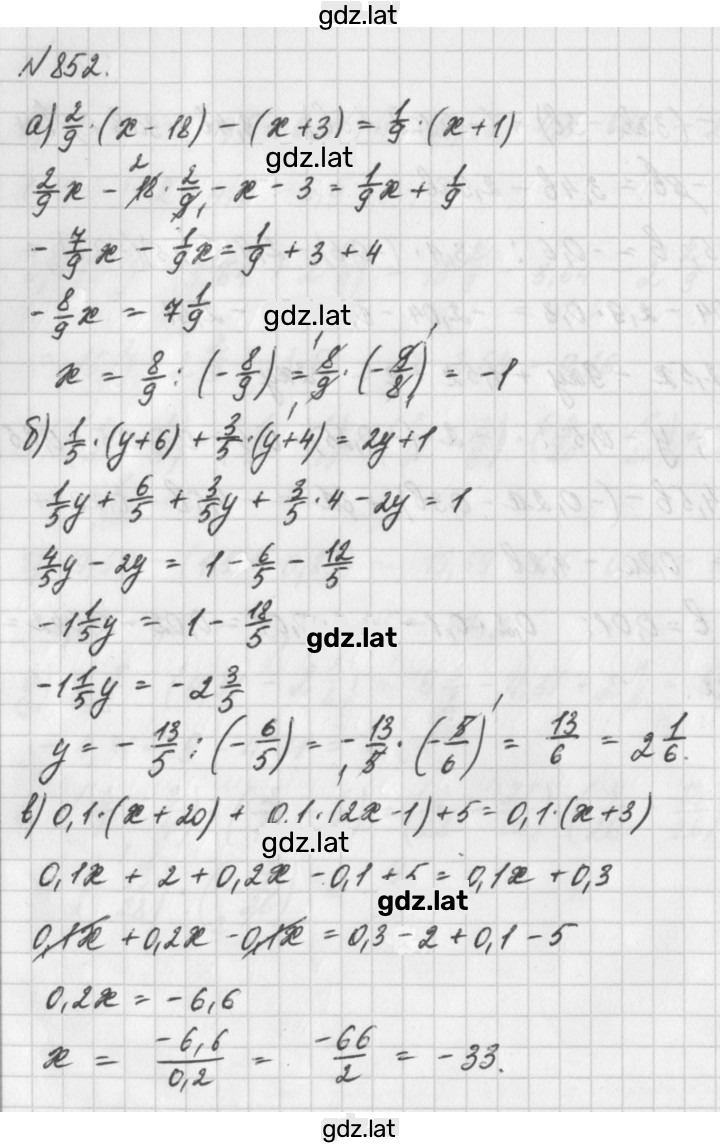 gdz.lat
№852.
а) 2/9 · (x - 18) - (x + 3) = 1/9 · (x + 1)
gdz.lat
2/9 x - 18 2 · 2/9 1 - x - 3 = 1/9 x + 1/9
- 7/9 x - 1/9 x = 1/9 + 3 + 4
- 8/9 x = 7 1/9
gdz.lat
x = 8/9 : (- 8/9) = 8/9 1 · (- 9/8 1 1) = -1
б) 1/5 · (y+6) + 3/5 · (y+4) = 2y+1
1/5 y + 6/5 + 3/5 y + 3/5 · 4 - 2y = 1
4/5 y - 2y = 1 - 6/5 - 12/5
-1 1/5 y = 1 - 18/5
gdz.lat
-1 1/5 y = -2 3/5
y = - 13/5 : (- 6/5) = - 13/5 1 · (- 5/6) 1 = 13/6 = 2 1/6.
в) 0,1·(x + 20) + 0,1·(2x - 1) + 5 = 0,1·(x + 3)
gdz.lat
0,1x + 2 + 0,2x - 0,1 + 5 = 0,1x + 0,3
gdz.lat
0,1x + 0,2x - 0,1x = 0,3 - 2 + 0,1 - 5
0,2x = -6,6
x = -6,6/0,2 = -66/2 = -33.
gdz.lat